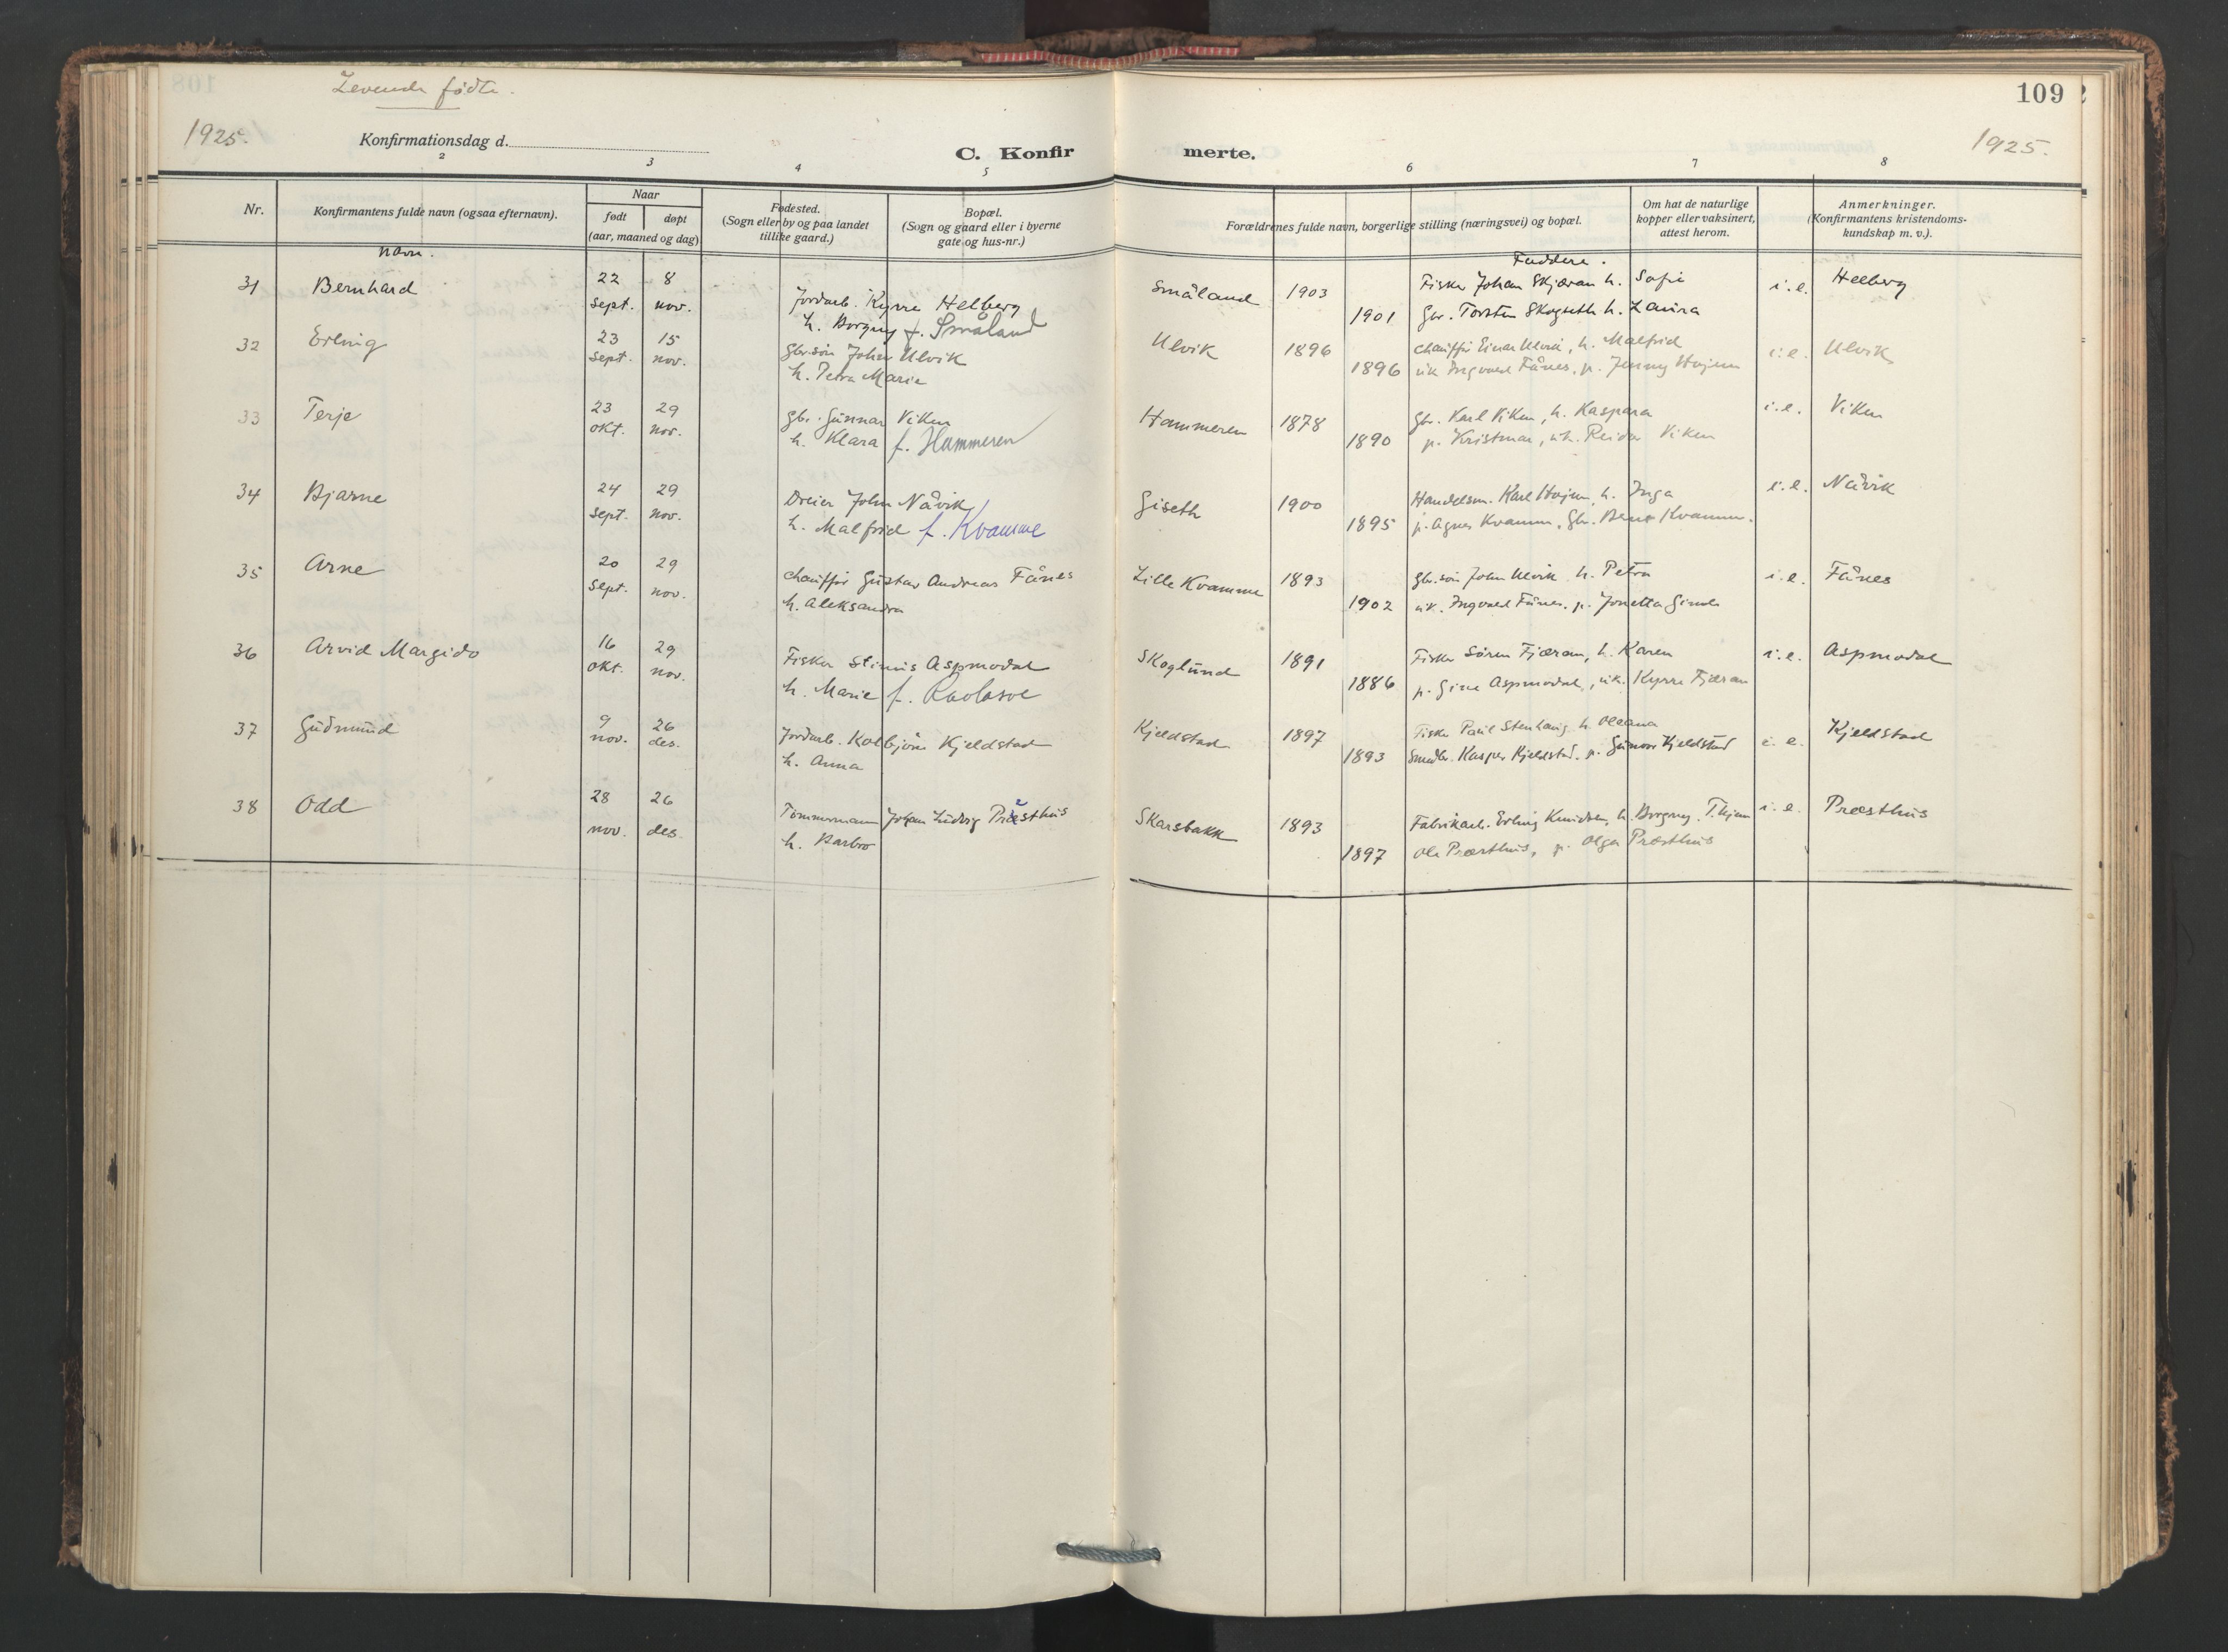 Levende födte.
109
1925.
Konfirmationsdag d.
C. Konfir
merte.
1925.
2 3 4 5 6 7 8
Nr.
Konfirmantens fulde navn (ogsaa efternavn).
Naar
født
døpt
(aar, maaned og dag)
Fødested.
(Sogn eller by og paa landet
tillike gaard.)
Bopæl.
(Sogn og gaard eller i byerne
gate og hus-nr.)
Forældrenes fulde navn, borgerlige stilling (næringsvei) og bopæl.
Om hat de naturlige
kopper eller vaksinert,
attest herom.
Anmerkninger.
(Konfirmantens kristendoms-
kundskap m. v.).
Navn.
Faddere.
31 Bernhard 22 8 Jordarb. Kyrre Helberg Småland 1903 Fisker Johan Skjæran h. Sofie i.e. Helberg
sept. nov. h. Borgny f. Småland 1901 Gbr. Torsten Skogseth h. Laura
32 Erling 23 15 Gbr.sön John Ulvik Ulvik 1896 Chaufför Einar Ulvik, h. Malfrid i.e. Ulvik
sept. nov. h. Petra Marie 1896 uk. Ingvald Fånes, p. Jenny Hojem
33 Terje 23 29 Gbr. Gunnar Viken Hammeren 1878 Gbr. Karl Viken, h. Kaspara i.e. Viken
okt. nov. h. Klara f. Hammeren 1890 p. Kristmar, uk. Reidar Viken
34 Bjarne 24 29 Dreier John Nåvik Giseth 1900 Handelsm. Karl Hojem, h. Inga i.e. Nåvik
sept. nov. h. Malfrid f. Kvamme 1895 p. Agnes Kvamm, Gbr. Kvamm.
35 Arne 20 29 Chaufför Gustav Andreas Fånes Lille Kvamme 1893 Gbr.sön John Ulvik h. Petra i.e. Fånes
sept. nov. h. Aleksandra 1902 uk. Ingvald Fånes, p. Jonetta
36 Arvid Margido 16 29 Fisker Stinus Aspmodal Skoglund 1891 Fisker Sören Fjæran, h. Karen i.e. Aspmodal
okt. nov. h. Marie f. 1886 p. Gine Aspmodal, uk. Kyrre Fjæran
37 Gudmund 9 26 Jordarb. Kolbjörn Kjeldstad Kjeldstad 1897 Fisker Paul Stenhaug h. Oleana i.e. Kjeldstad
nov. des. h. Anna 1893 Kasper Kjeldstad, p. Kjeldstad
38 Odd 28 26 Tømmermann Johan Ludvig Præsthus Skarsbakk 1893 Fabrikarb. Erling Knudsen, h. Borgny, i.e. Præsthus
nov. des. h. Barbro 1897 Ole Præsthus, p. Olga Præsthus